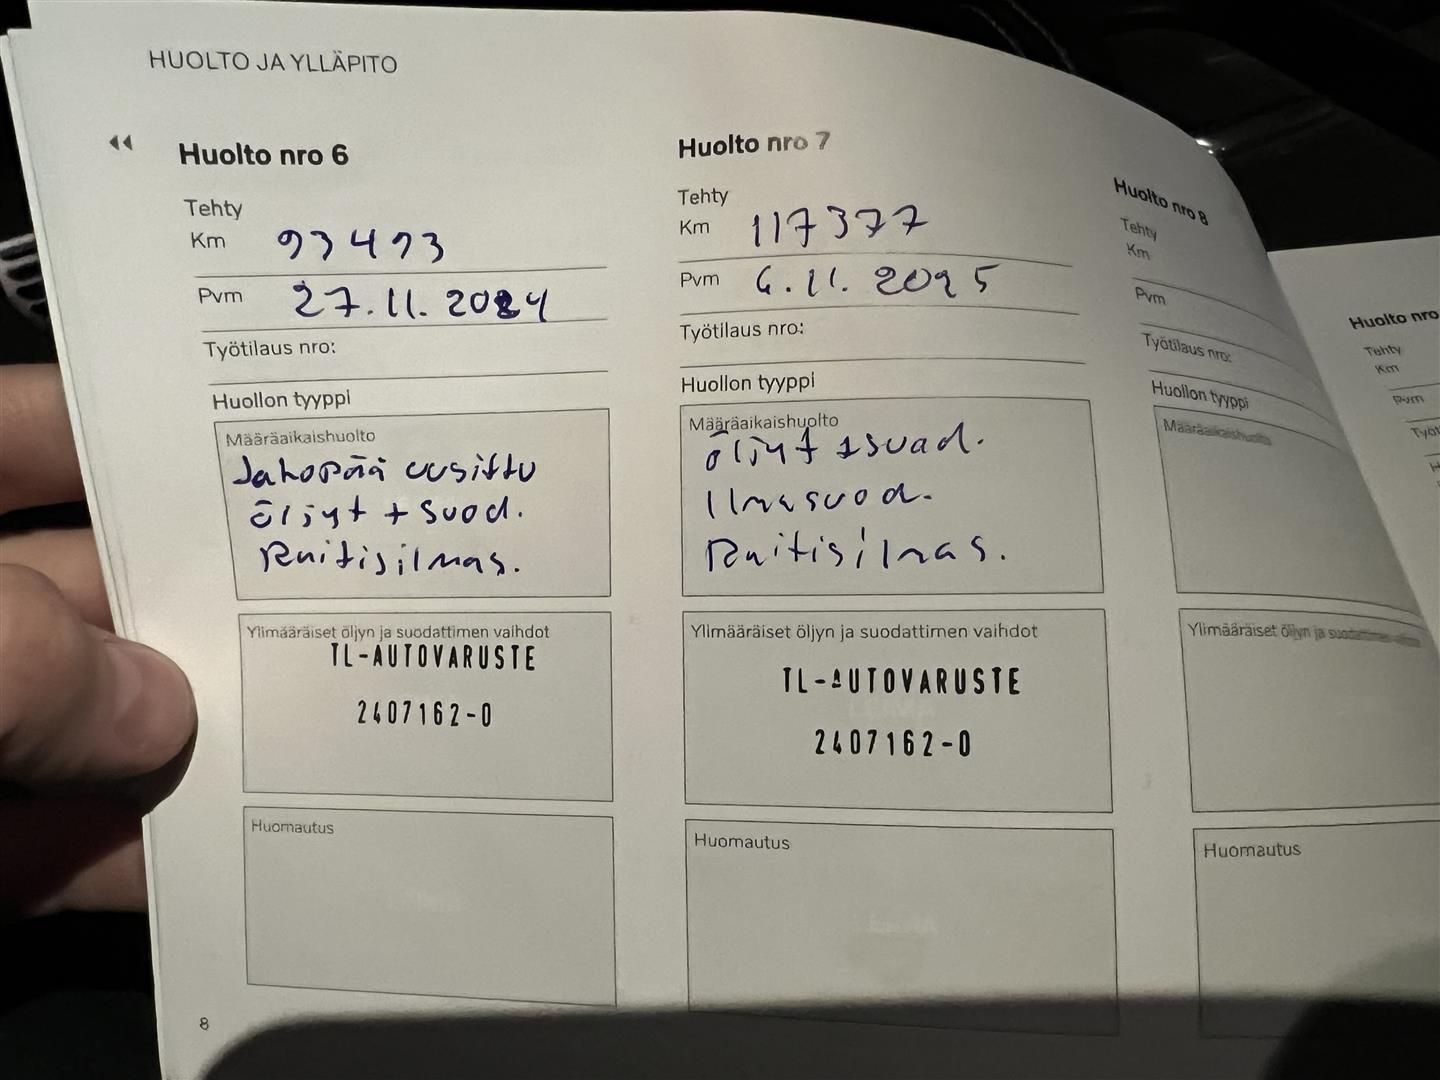 HUOLTO JA YLLÄPITO
Huolto nro 6
Tehty
Km 93493
Pvm 27.11.2024
Työtilaus nro:
Huollon tyyppi
Määräaikaishuolto
Jakopää uusittu
öljyt + suod.
Raitisilmas.
Ylimääräiset öljyn ja suodattimen vaihdot
TL-AUTOVARUSTE
2407162-0
Huomautus
8
Huolto nro 7
Tehty
Km 117377
Pvm 6.11.2025
Työtilaus nro:
Huollon tyyppi
Määräaikaishuolto
öljyt + suod.
Ilmasuod.
Raitisilmas.
Ylimääräiset öljyn ja suodattimen vaihdot
TL-AUTOVARUSTE
2407162-0
Huomautus
Huolto nro 8
Tehty
Km
Pvm
Työtilaus nro:
Huollon tyyppi
Määräaikaishuolto
Ylimääräiset öljyn ja suodattimen vaihdot
Huomautus
Huolto nro
Tehty
Km
Pvm